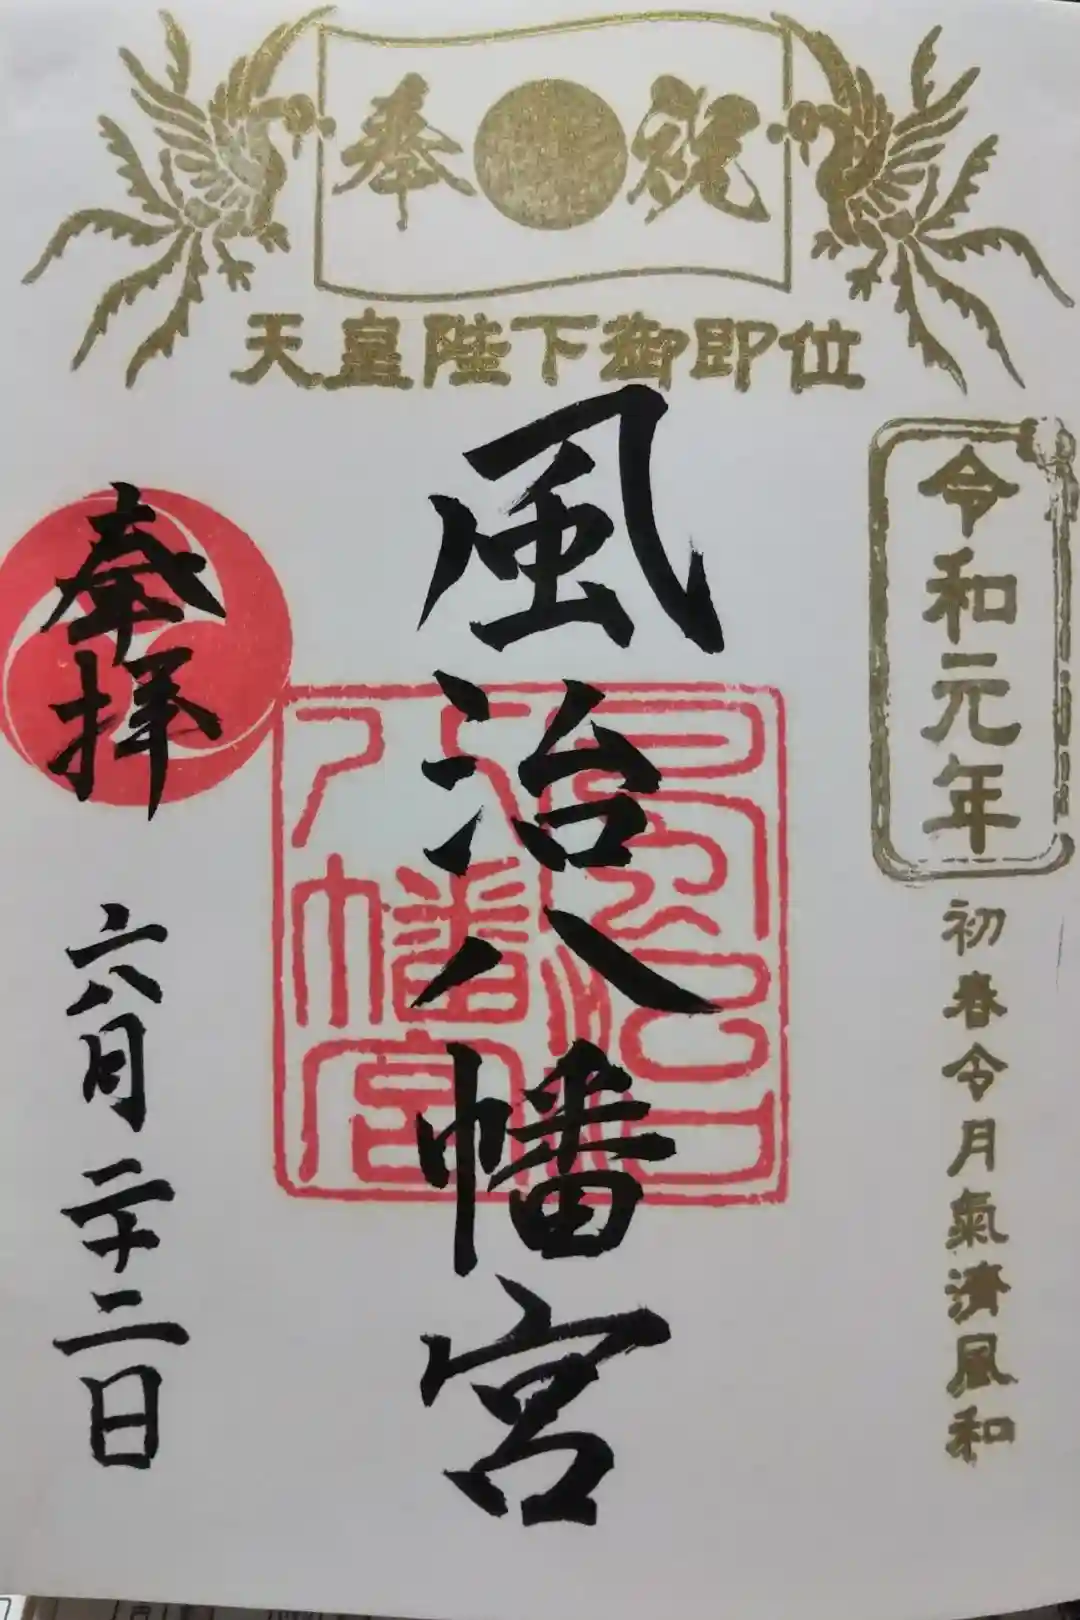 奉祝
天皇陛下御即位
令和元年
初春令月氣濟風和
風治八幡宮
奉拝
六月二十二日
風治
八幡宮